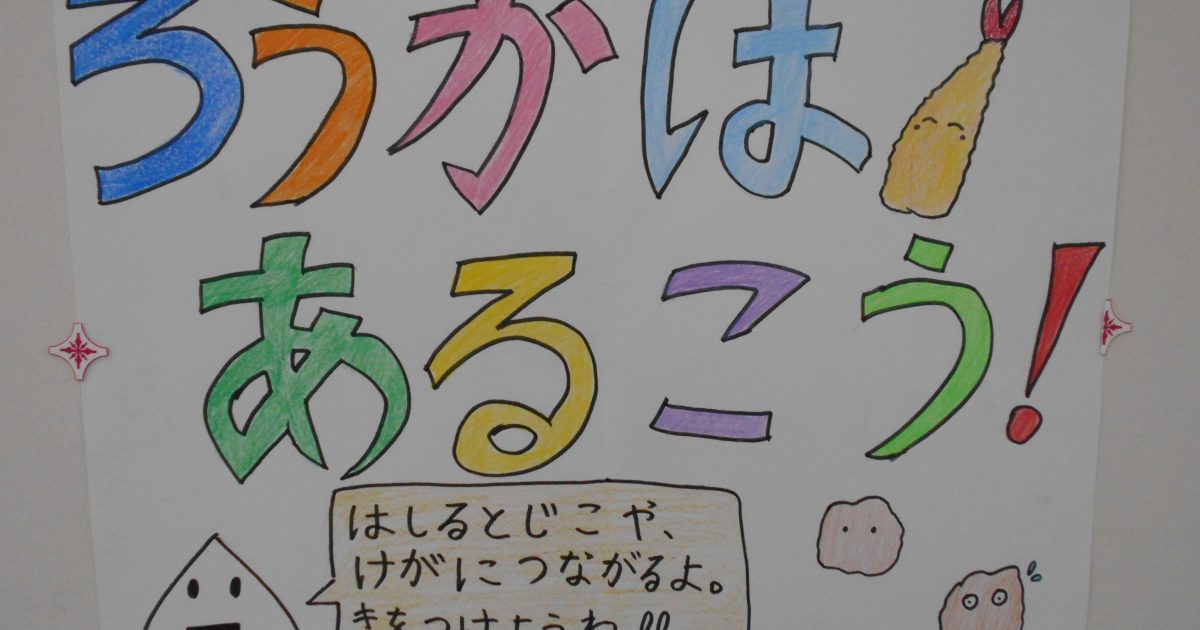 ろうかは
あるこう!
はしるとじこや、
けがにつながるよ。
きをつけようね!!